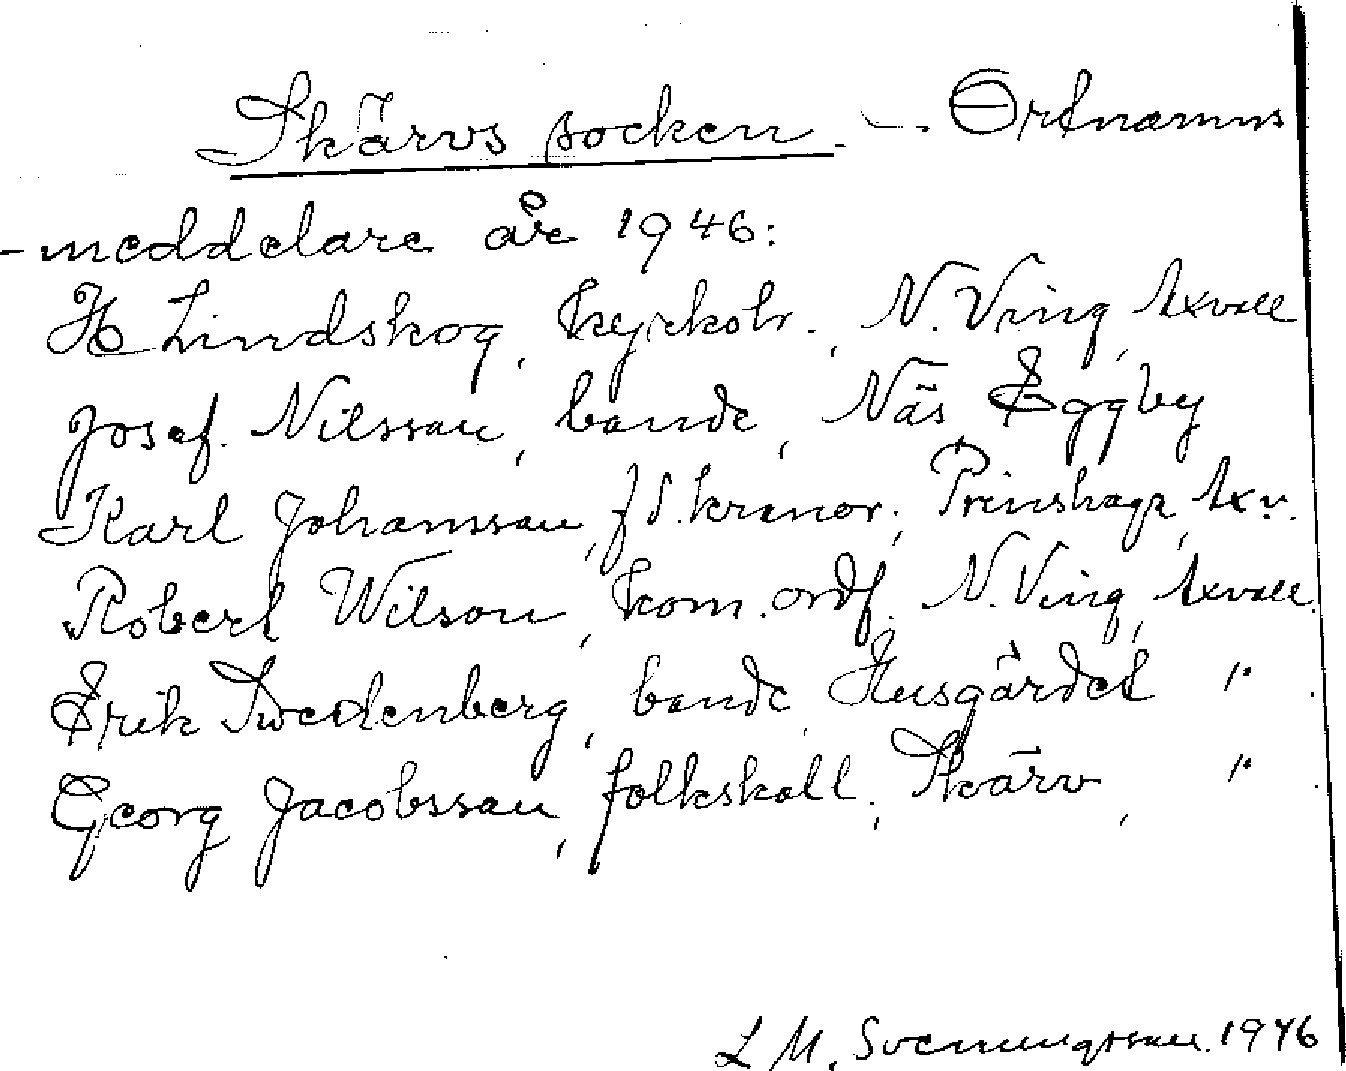 Skärvs socken. - Ortnamns
-meddelare år 1946:
H Lindskog, kyrkobr., N. Ving, Axvall
Josef Nilsson, bonde, Näs Eggby
Karl Johansson, f d. kronor., Prinshaga, Axv.
Robert Wilson, kom. ordf. N. Ving, Axvall.
Erik Swedenberg, bonde, Husgärdet "
Georg Jacobsson, folkskoll., Skärv, "
L M. Svenungsson. 1946